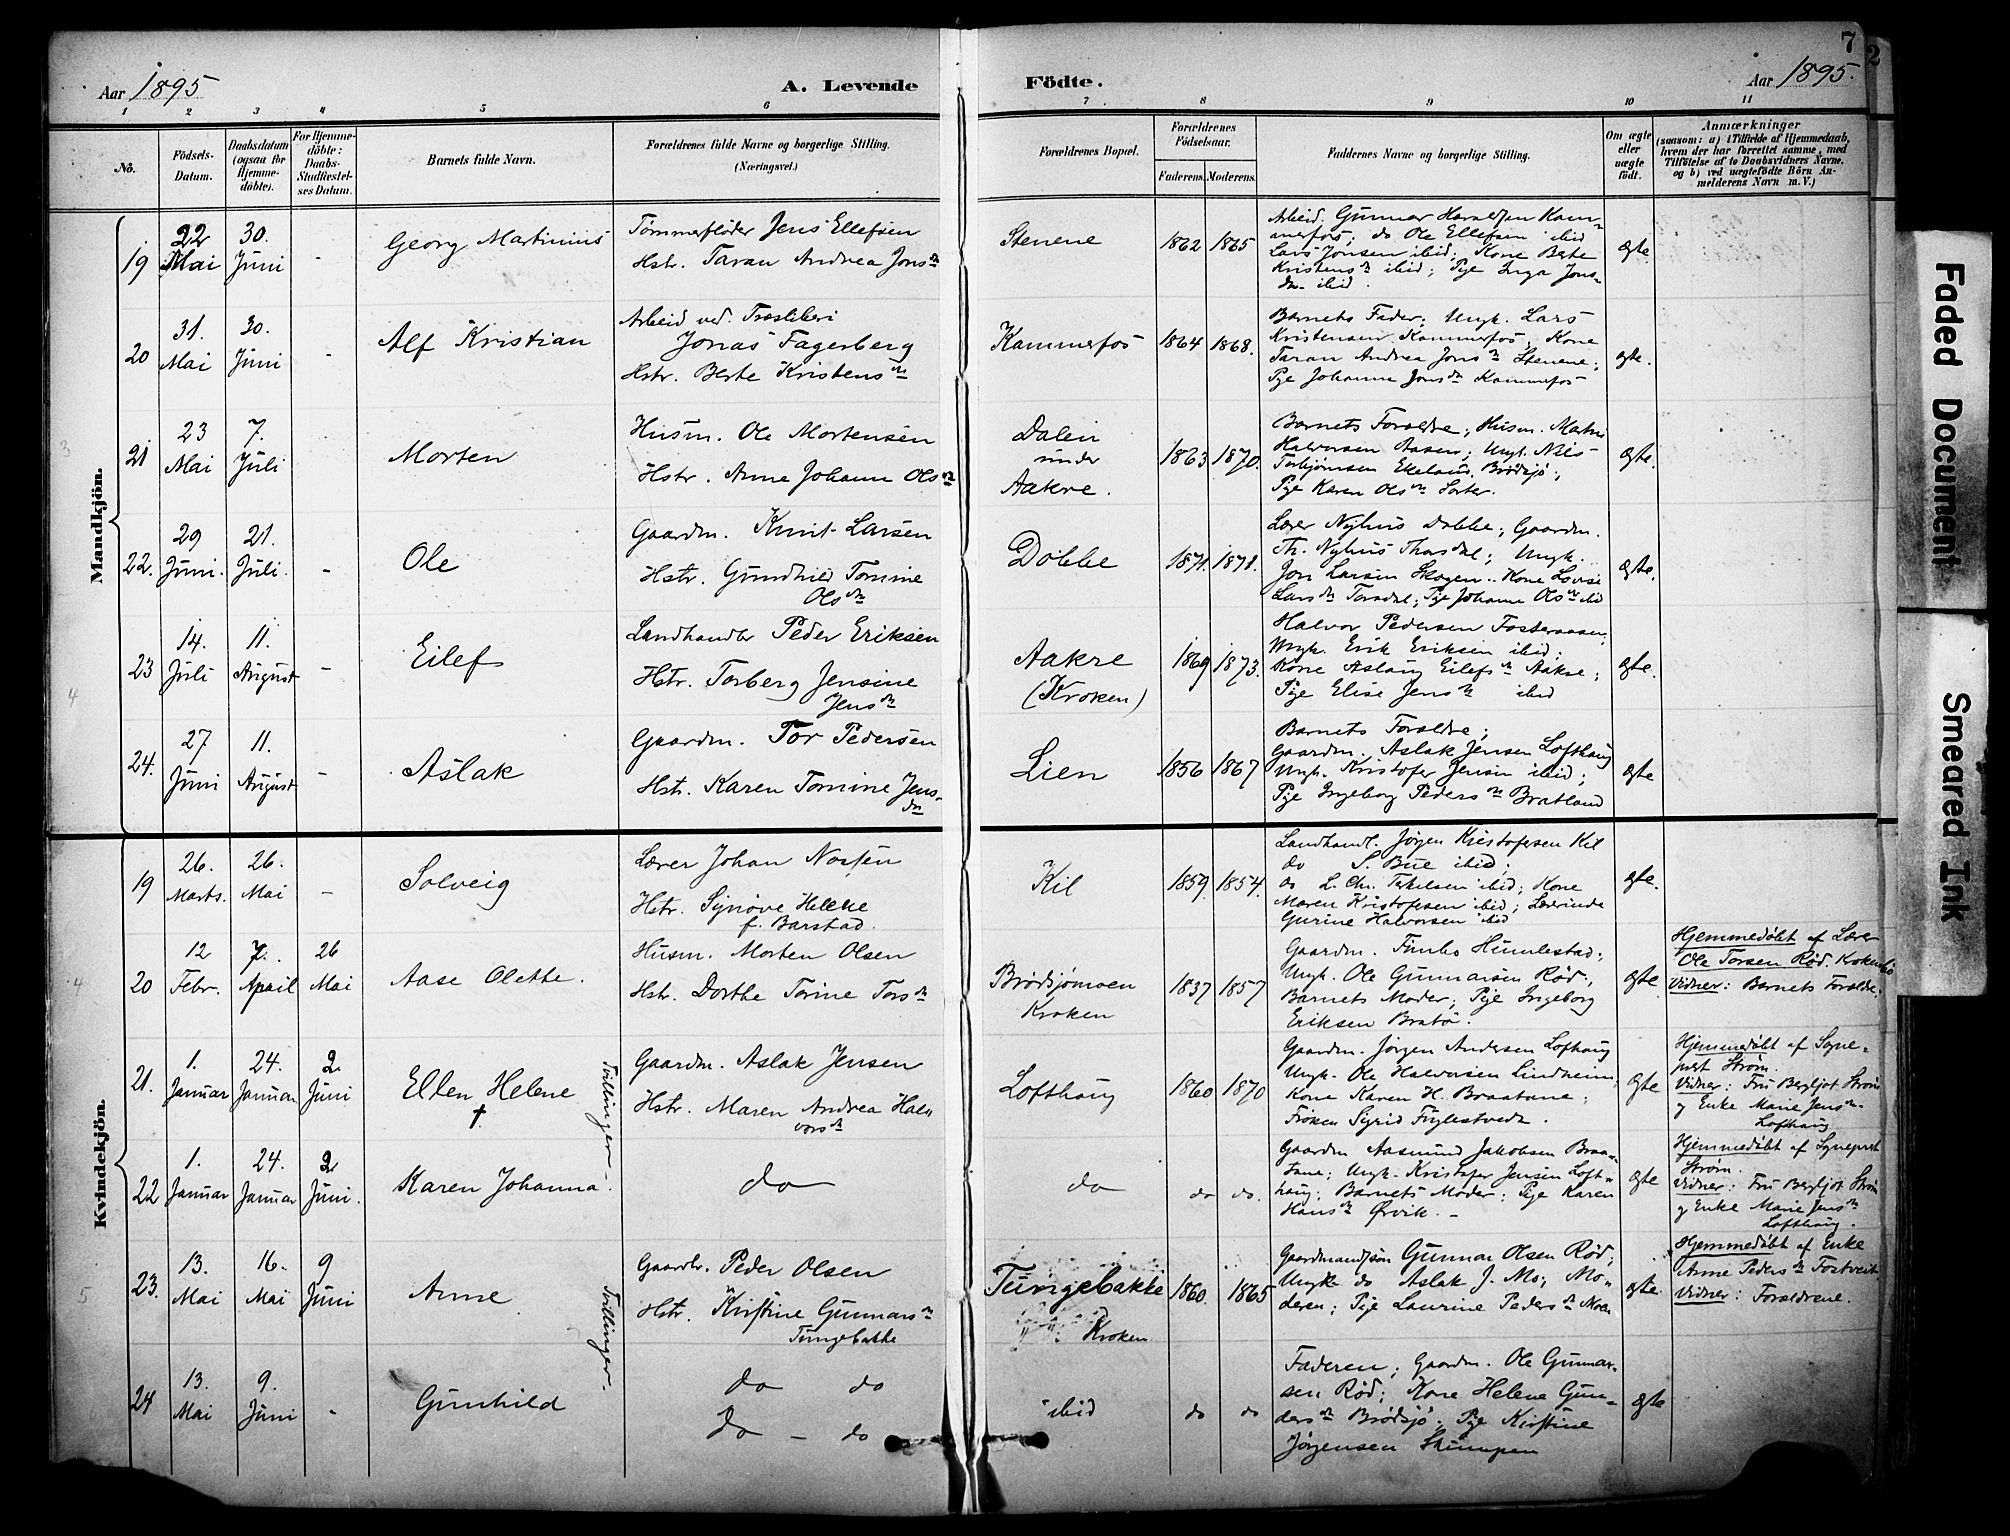 7
2
Aar 1895
A. Levende
Födte.
Aar 1895.
1 2 3 4 5 6 7 8 9 10 11
No.
Födsels-
Datum.
Daabsdatum
(ogsaa for
Hjemme-
döbte).
For Hjemme-
döbte:
Daabs-
Stadfæstel-
ses Datum.
Barnets fulde Navn.
Forældrenes fulde Navne og borgerlige Stilling.
(Næringsvei.)
Forældrenes Bopæl.
Forældrenes
Födselsaar.
Faderens. Moderens.
Faddernes Navne og borgerlige Stilling.
Om ægte
eller
uægte
födt.
Anmærkninger
(saasom: a) i Tilfælde af Hjemmedaab,
hvem der har forrettet samme, med
Tilföielse af to Daabsvidners Navne,
og b) ved uægtefödte Börn An-
melderens Navn m. V.)
Mandkjön.
19
22 Mai
30. Juni
-
Georg Martinius
Tømmerfløder Jens Ellefsen
Hstr. Taran Andrea Jonsdtr
Stenene
1862 1865
Arbeid. Gunnar Haraldsen Kam-
merfos; do Ole Ellefsen ibid
Lars Jonsen ibid; Kone Berte
Kristensdtr ibid; Pige Inga Jons-
dtr ibid.
ægte
20
31. Mai
30. Juni
-
Alf Kristian
Arbeid ved Træsliberi
Jonas Fagerberg
Hstr. Berte Kristensdtr
Kammerfos
1864 1868.
Barnets Fader; Ungk. Lars
Kristensen Kammerfos, Kone
Taran Andrea Jonsdtr Stenene;
Pige Johanne Jonsdtr Kammerfos
ægte.
21
23 Mai
7. Juli
Morten
Husm. Ole Mortensen
Hstr. Anne Johanne Olsdtr
Dalen
under
Aakre.
1863 1870.
Barnets Forældre; Husm.
Halvorsen Aasen; Ungk. Nils
Torbjørnsen Ekelaud, Brødsjø;
Pige Karen Olsdtr
ægte.
22.
29 Juni.
21. Juli.
-
Ole
Gaardm. Knut Larsen
Hstr. Gundhild Tomine
Olsdtr
Dobbe
1871. 1871.
Lærer Nyhus Dobbe; Gaardm.
Th. Nyhus Thorsdal; Ungk.
Jon Larsen Skogen; Kone Lovise
Larsdtr Torsdal; Pige Johanne Olsdtr ibid
ægte.
23
14. Juli
11. August
-
Eilef
Landhandler Peder Eriksen
Hstr. Torberg Jensine
Jensdtr
Aakre
(Kroken)
1869 1873.
Halvor Pedersen Fosteraasen;
Ungk. Erik Eriksen ibid;
Kone Aslaug Eilefsdtr Aakre;
Pige Elise Jensdtr ibid
ægte.
24.
27 Juni
11. August
-
Aslak
Gaardm. Tor Pedersen
Hstr. Karen Tomine Jens-
dtr
Lien
1856 1867
Barnets Forældre;
Gaardm. Aslak Jensen Lofthaug
Ungk. Kristofer Jensen ibid;
Pige Ingeborg Pedersdtr Bratland
ægte
Kvindekjön.
19
26. Marts.
26. Mai
-
Solveig
Lærer Johan Nosten
Hstr. Synøve Helene
f. Barstad.
Kil
1859. 1854.
Landhandl. Jørgen Kristofersen Kil
do S. Bue ibid;
do L. Chr. Terkelsen ibid; Kone
Maren Kristofersen ibid; Lærerinde
Gurine Halvorsen ibid
ægte.
20
12 Febr.
7. April
26 Mai
Aase Olette.
Husm. Morten Olsen
Hstr. Dorthe Torine Torsdtr
Brødsjømoen
Kroken
1837 1857
Gaardm. Humlestad;
Ungk. Ole Gunnarsen Rød;
Barnets Moder; Pige Ingeborg
Eriksen Bratø.
ægte
Hjemmedøbt af Lærer
Ole Torsen Rød.
Vidner: Barnets Forældre.
21.
1. Januar
24. Januar
2. Juni
Ellen Helene
†
Tvillinger
Gaardm. Aslak Jensen
Hstr. Maren Andrea Hal-
vorsdtr
Lofthaug
1860 1870
Gaardm. Jørgen Andersen Lofthaug
Ungk. Ole Halvorsen Lindheim;
Kone Karen H. Braatane;
Frøken Sigrid Fuglestvedt.
ægte
Hjemmedøbt af Sogne-
prest Strøm.
Vidner: Fru Bergljot Strøm
og Enke Marie Jensdtr
Lofthaug
22
1. Januar
24. Januar
2 Juni.
Karen Johanna
do
do
do do.
Gaardm Aasmund Jakobsen Braa-
tane; Ungk. Kristofer Jensen Loft-
haug; Barnets Moder; Pige Karen
Hansdtr Ørvik. -
ægte
Hjemmedøbt af Sogneprst
Strøm.
Vidner: Fru Bergljot Strøm
og Enke Marie Jensdtr
Lofthaug.
23.
13. Mai
16. Mai
9 Juni
Anne
Tvillinger.
Gaardbr. Peder Olsen
Hstr. Kirstine Gunnarsdtr
Tungebakke
Tungebakke
" " Kroken
1860. 1865
Gaardmandssøn Gunnar Olsen Rød;
Ungk do Aslak J. Mo; Mo-
deren; Pige Laurine Pedersdtr Moen
ægte.
Hjemmedøbt af Enke
Anne Pedersdtr Fostveit
Vidner: Forældrene.
24
13. Mai
9. Juni
-
Gunhild
do do
do - do
ibid
do do
Faderen; Gaardm. Ole Gunnar-
sen Rød; Kone Helene Gun-
dersdtr Brødsjø; Pige Kirstine
Jørgensen Skumpen
ægte
Faded Document
Smeared Ink